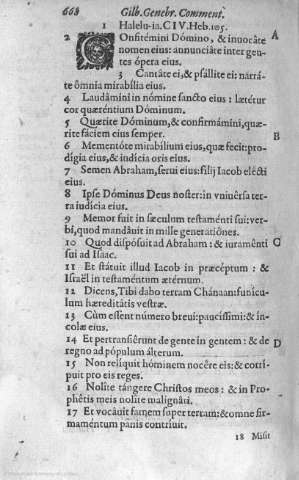 668 Gilb. Genebr. Comment.
1 Halelu-ia. CIV. Heb. 105.
2 COnfitémini Dómino, & inuocáte A
nomen eius: annunciáte inter gen-
tes ópera eius.
3 Cantáte ei, & psállite ei: narrá-
te ómnia mirabília eius.
4 Laudámini in nómine sancto eius : lætétur
cor quæréntium Dóminum.
5 Quærite Dóminum, & confirmámini, quæ-
rite fáciem eius semper. B
6 Mementóte mirabílium eius, quæ fecit: pro-
dígia eius, & iudícia oris eius.
7 Semen Abraham, serui eius: fílij Iacob elécti
eius.
8 Ipse Dóminus Deus noster: in vniuérsa ter-
ra iudícia eius.
9 Memor fuit in sæculum testaménti sui: ver-
bi, quod mandáuit in mille generatiónes.
10 Quod dispósuit ad Abraham : & iuraménti C
sui ad Isaac.
11 Et státuit illud Iacob in præcéptum : & 
Israël in testaméntum ætérnum.
12 Dicens, Tibi dabo terram Chánaan: funícu-
lum hæreditátis vestræ.
13 Cùm essent número breui: paucíssimi: & ín-
colæ eius.
14 Et pertransiérunt de gente in gentem : & de D
regno ad pópulum álterum.
15 Non relíquit hóminem nocére eis: & corrí-
puit pro eis reges.
16 Nolíte tángere Christos meos : & in Pro-
phétis meis nolíte malignáti.
17 Et vocáuit famem super terram: & omne fir-
maméntum panis contríuit.
18 Misit